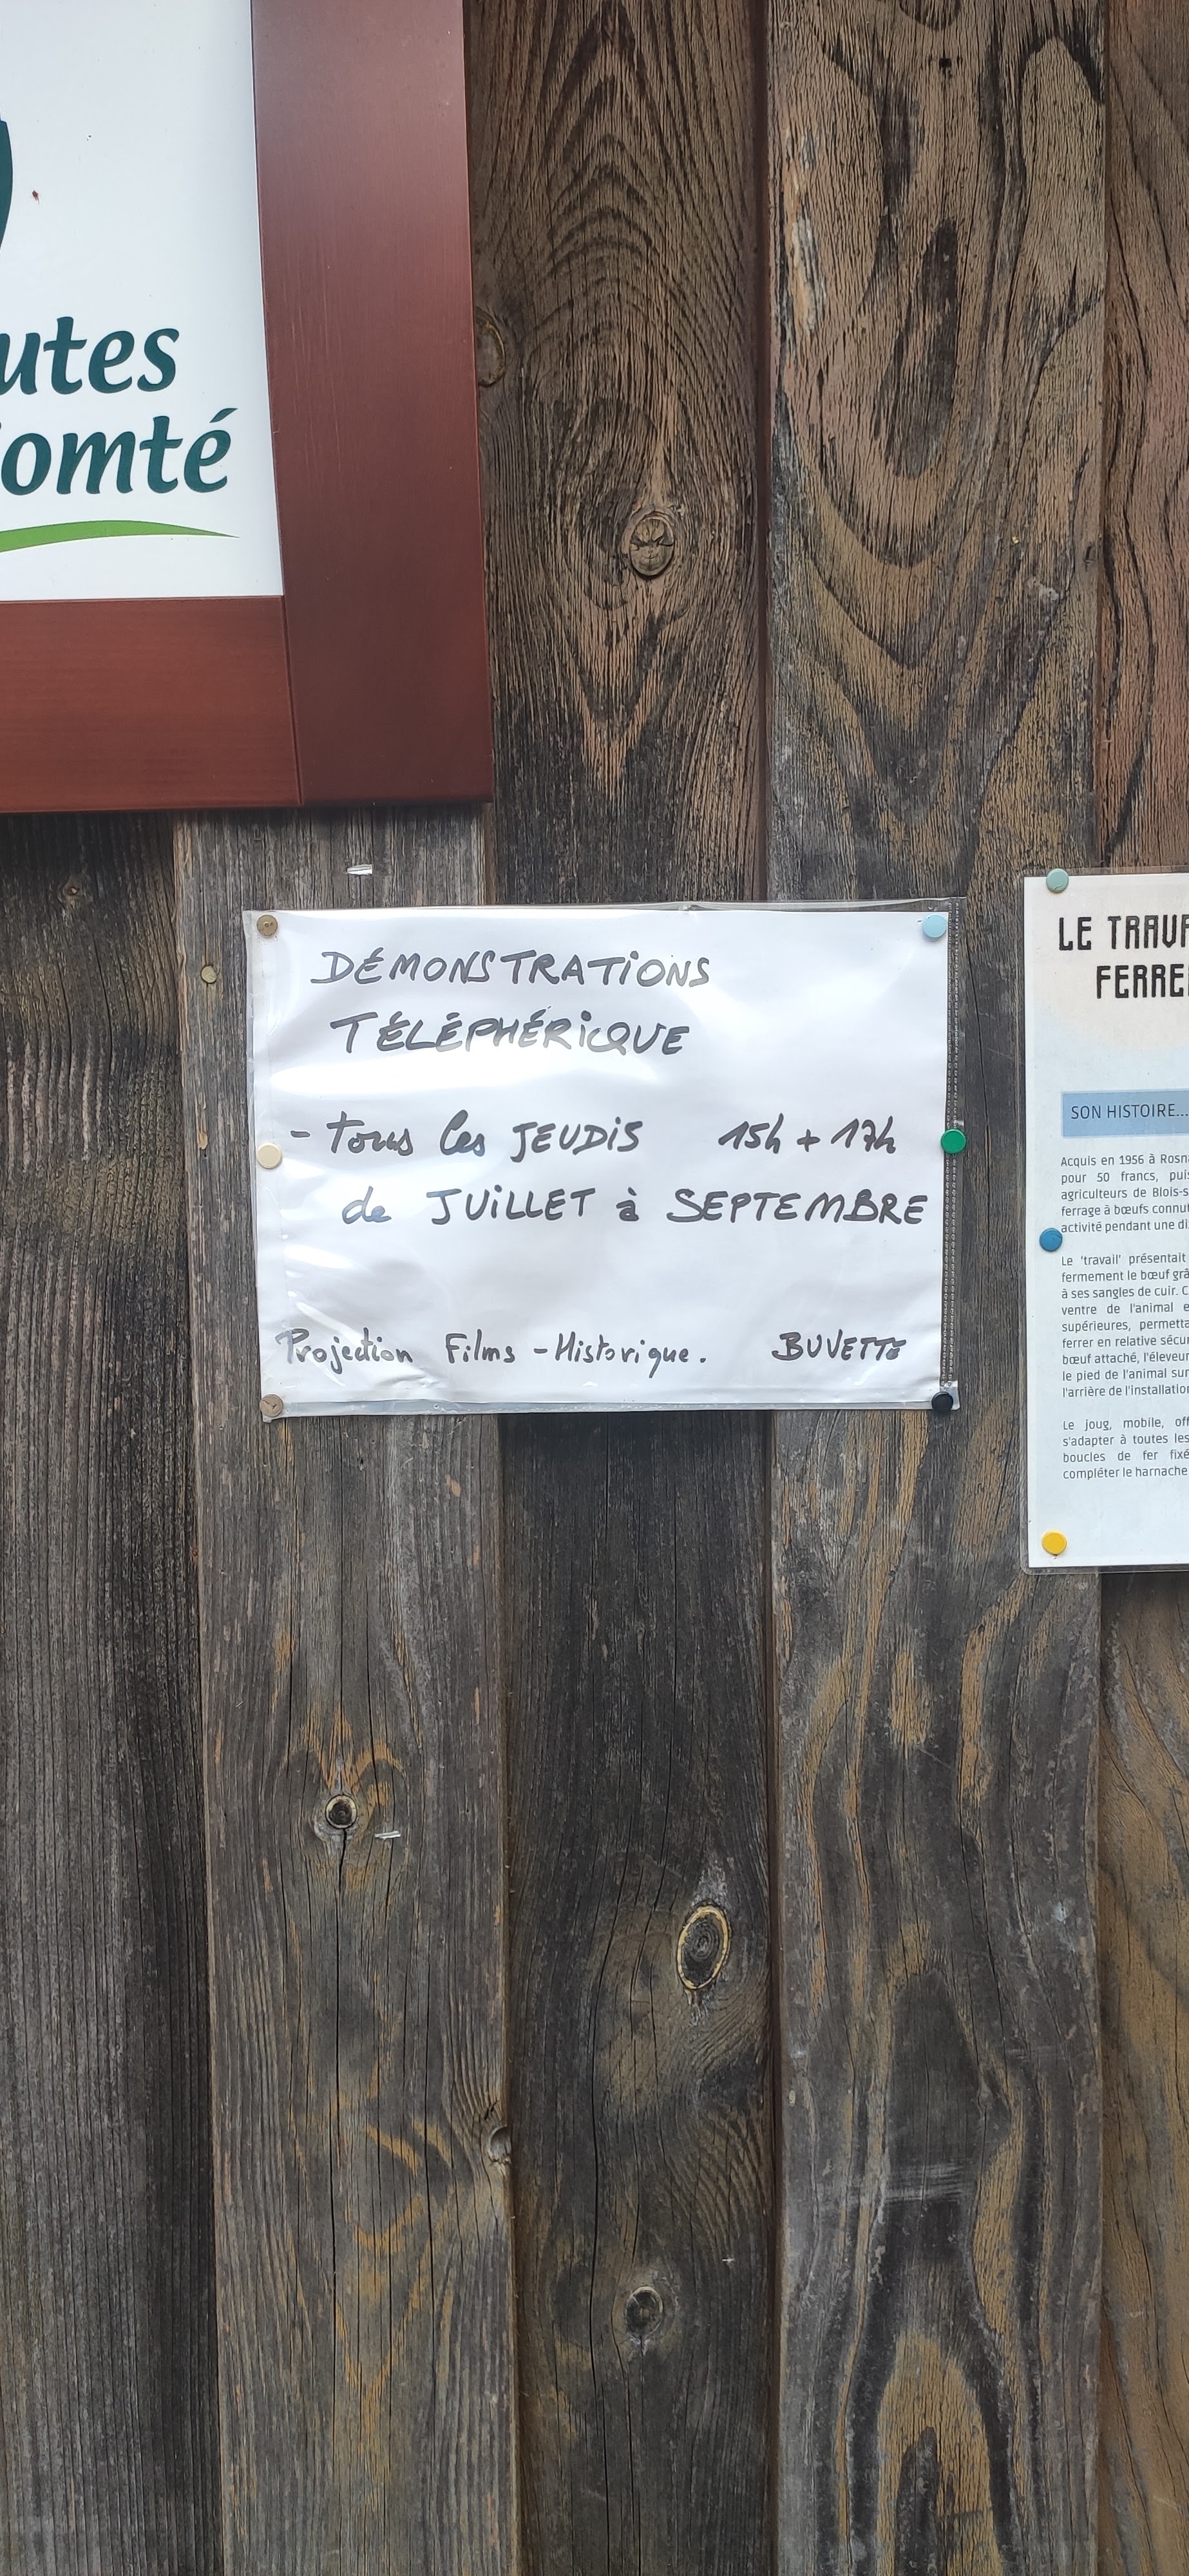 utes
omté
DÉMONSTRATIONS
TÉLÉPHÉRIQUE
- tous les JEUDIS 15h + 17h
de JUILLET à SEPTEMBRE
Projection Films - Historique. BUVETTE
LE TRAVA
FERRE
SON HISTOIRE...
Acquis en 1956 à Rosn
pour 50 francs, puis
agriculteurs de Blois-s
ferrage à bœufs connut
activité pendant une di
Le 'travail' présentait
fermement le bœuf grâ
à ses sangles de cuir. C
ventre de l'animal e
supérieures, permetta
ferrer en relative sécur
bœuf attaché, l'éleveur
le pied de l'animal sur
l'arrière de l'installation
Le joug, mobile, off
s'adapter à toutes les
boucles de fer fixé
compléter le harnache